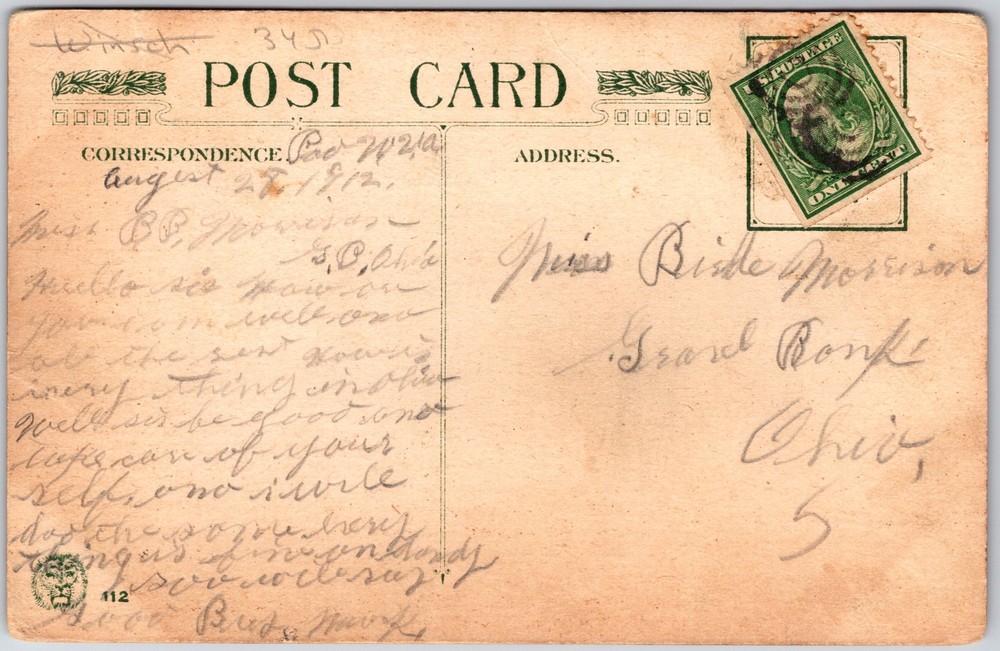 Winsch 3450
POST CARD
CORRESPONDENCE. W.Va
ADDRESS.
U.S. POSTAGE
ONE CENT
August 28, 1912.
Miss B.P. Morrison
G.P. Ohio
Hello sis how are
you i am well and
all the rest how is
every thing in Ohio
Well sis be good and
take car of your
self, and i will
doo the same every
thing is dandy
soo will say
Good Bye, Mark,
Miss Birde Morrison
Grand Bank
Ohio,
S
112